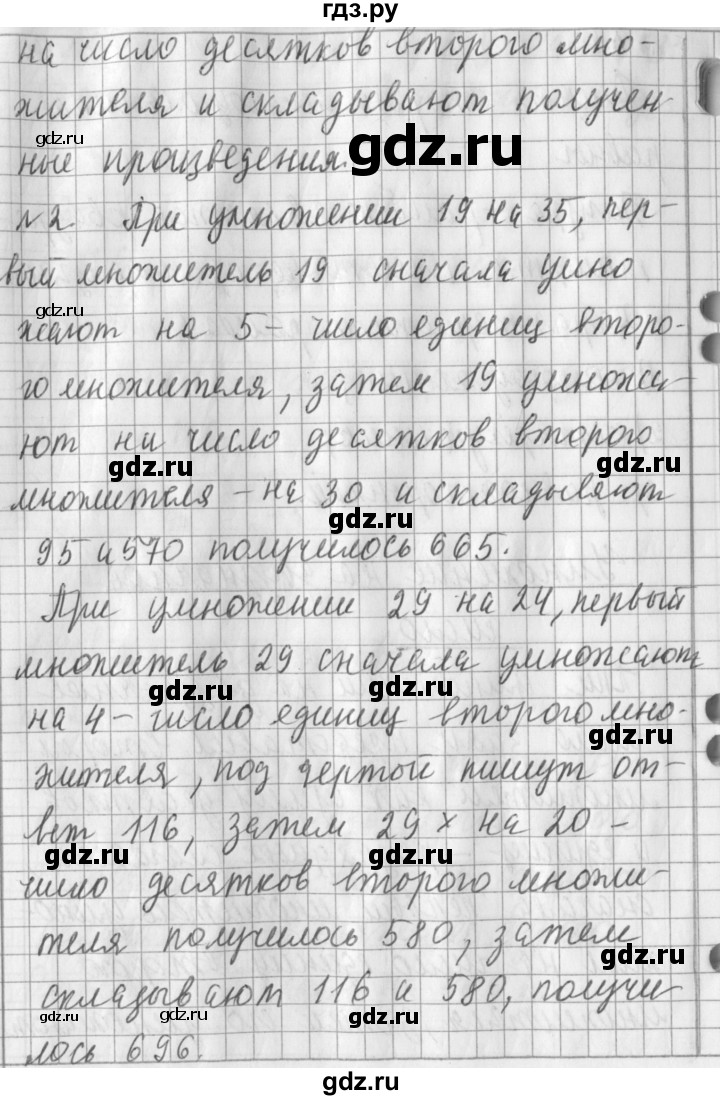 гдз.ру
на число десятков второго мно-
жителя и складывают получен-
gdz.ru
gdz.ru
ные произведения.
gdz.ru
№2. При умножении 19 на 35, пер-
вый множитель 19 сначала умно
gdz.ru
жают на 5 - число единиц второ-
го множителя, затем 19 умножа-
ют на число десятков второго
gdz.ru
gdz.ru
множителя - на 30 и складывают
gdz.ru
95 и 570 получилось 665.
При умножении 29 на 24, первый
множитель 29 сначала умножают
gdz.ru
gdz.ru
на 4 - число единиц второго мно-
gdz.ru
жителя, под чертой пишут от-
вет 116, затем 29 х на 20 -
gdz.ru
gdz.ru
число десятков второго множи-
теля получилось 580, затем
gdz.ru
складывают 116 и 580, получи
gdz.ru
gdz.ru
gdz.ru
gdz.ru
лось 696.
gdz.ru